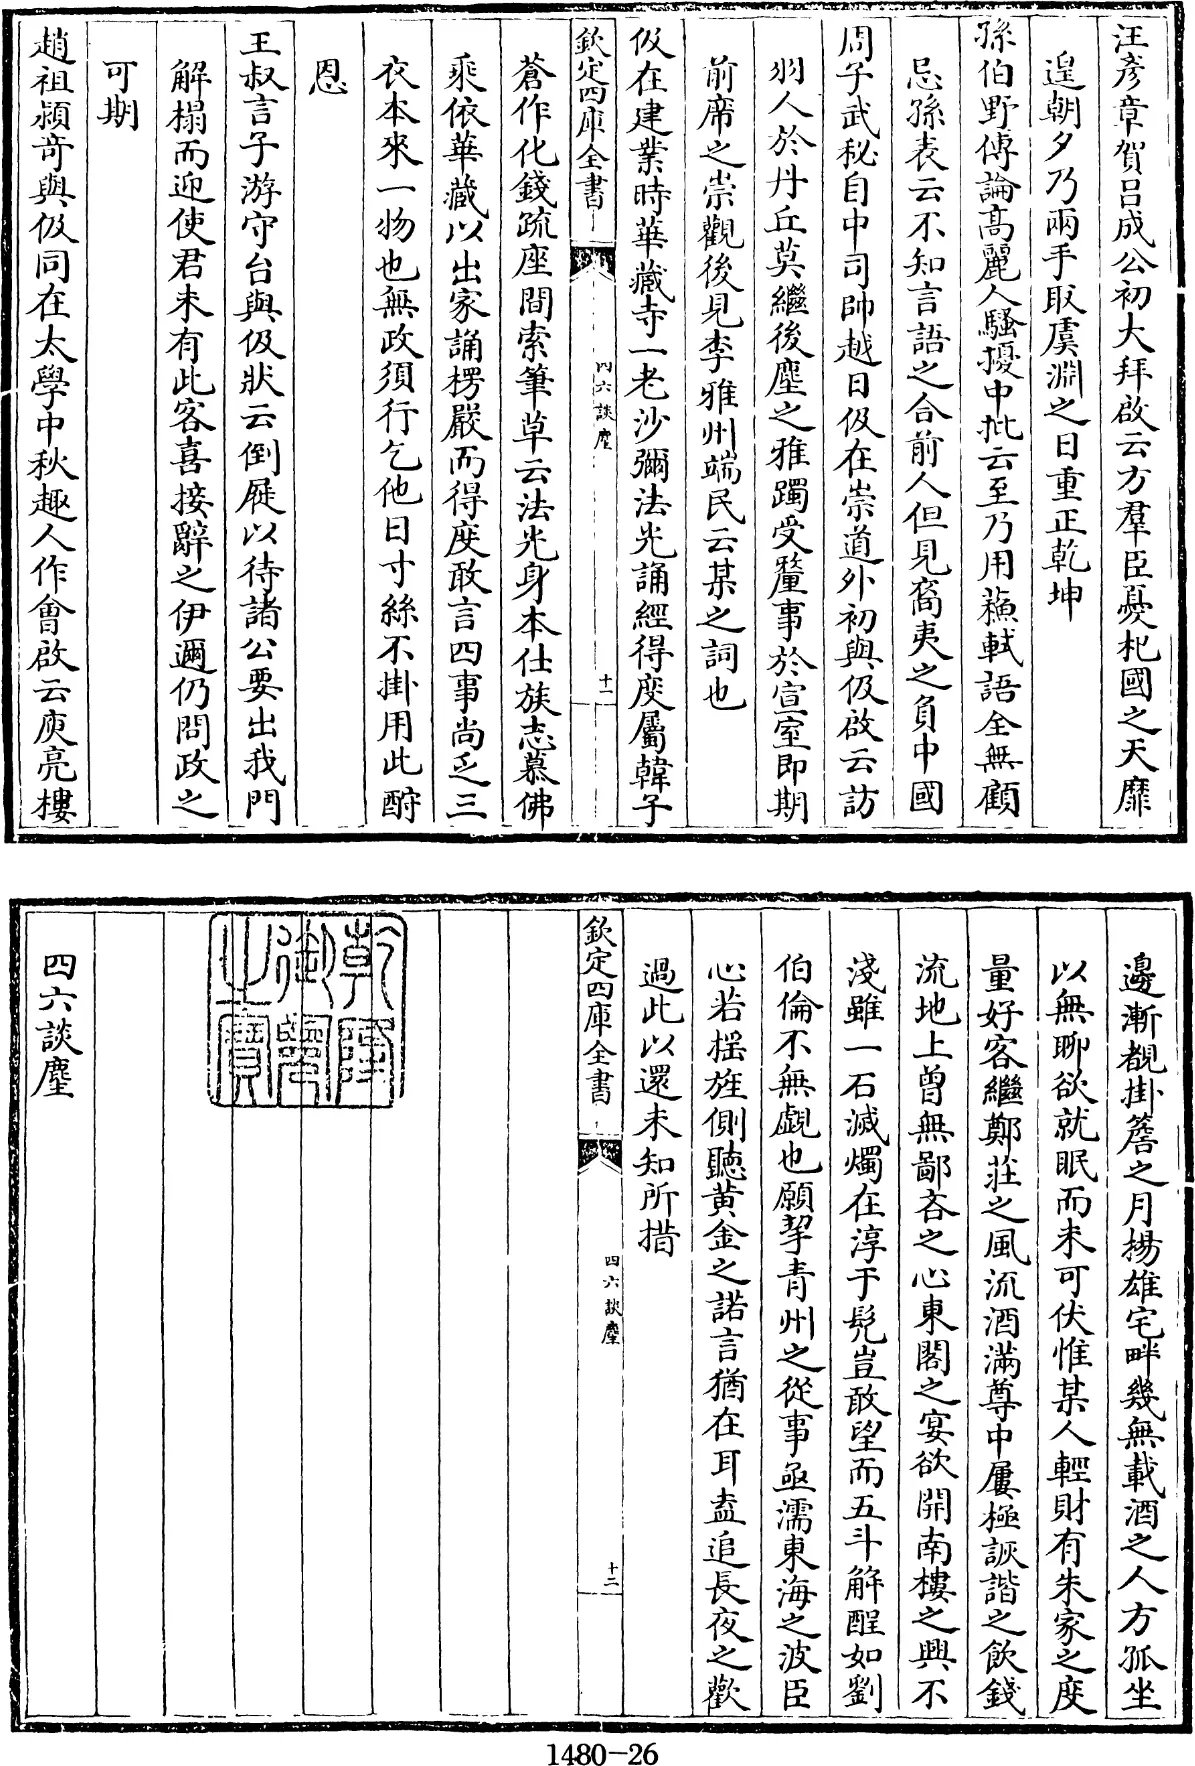 汪彦章賀吕成公初大拜啟云方羣臣憂杞國之天靡
遑朝夕乃兩手取虞淵之日重正乾坤
孫伯野傅論髙麗人騷擾中批云至乃用蘓軾語全無顧
忌孫表云不知言語之合前人但見裔夷之負中國
周子武秘自中司帥越日伋在崇道外初與伋啟云訪
羽人於丹丘莫繼後塵之雅躅受釐事於宣室即期
前席之崇觀後見李雅州端民云某之詞也
伋在建業時華藏寺一老沙彌法光誦經得度屬韓子
欽定四庫全書
四六談麈
十一
蒼作化錢疏座間索筆草云法光身本仕族志慕佛
乘依華藏以出家誦楞嚴而得度敢言四事尚乏三
衣本來一物也無政須行乞他日寸絲不掛用此酧
恩
王叔言子游守台與伋狀云倒屣以待諸公要出我門
解榻而迎使君未有此客喜接辭之伊邇仍問政之
可期
趙祖潁奇與伋同在太學中秋趣人作會啟云庾亮樓
邊漸覩掛簷之月揚雄宅畔幾無載酒之人方孤坐
以無聊欲就眠而未可伏惟某人輕財有朱家之度
量好客繼鄭莊之風流酒滿尊中屢極詼諧之飲錢
流地上曽無鄙吝之心東閣之宴欲開南樓之興不
淺雖一石滅燭在淳于髠豈敢望而五斗解酲如劉
伯倫不無覷也願挈青州之從事亟濡東海之波臣
心若揺旌側聽黄金之諾言猶在耳盍追長夜之歡
過此以還未知所措
欽定四庫全書
四六談麈
十二
乾隆
御覽
之寶
四六談麈
1480-26